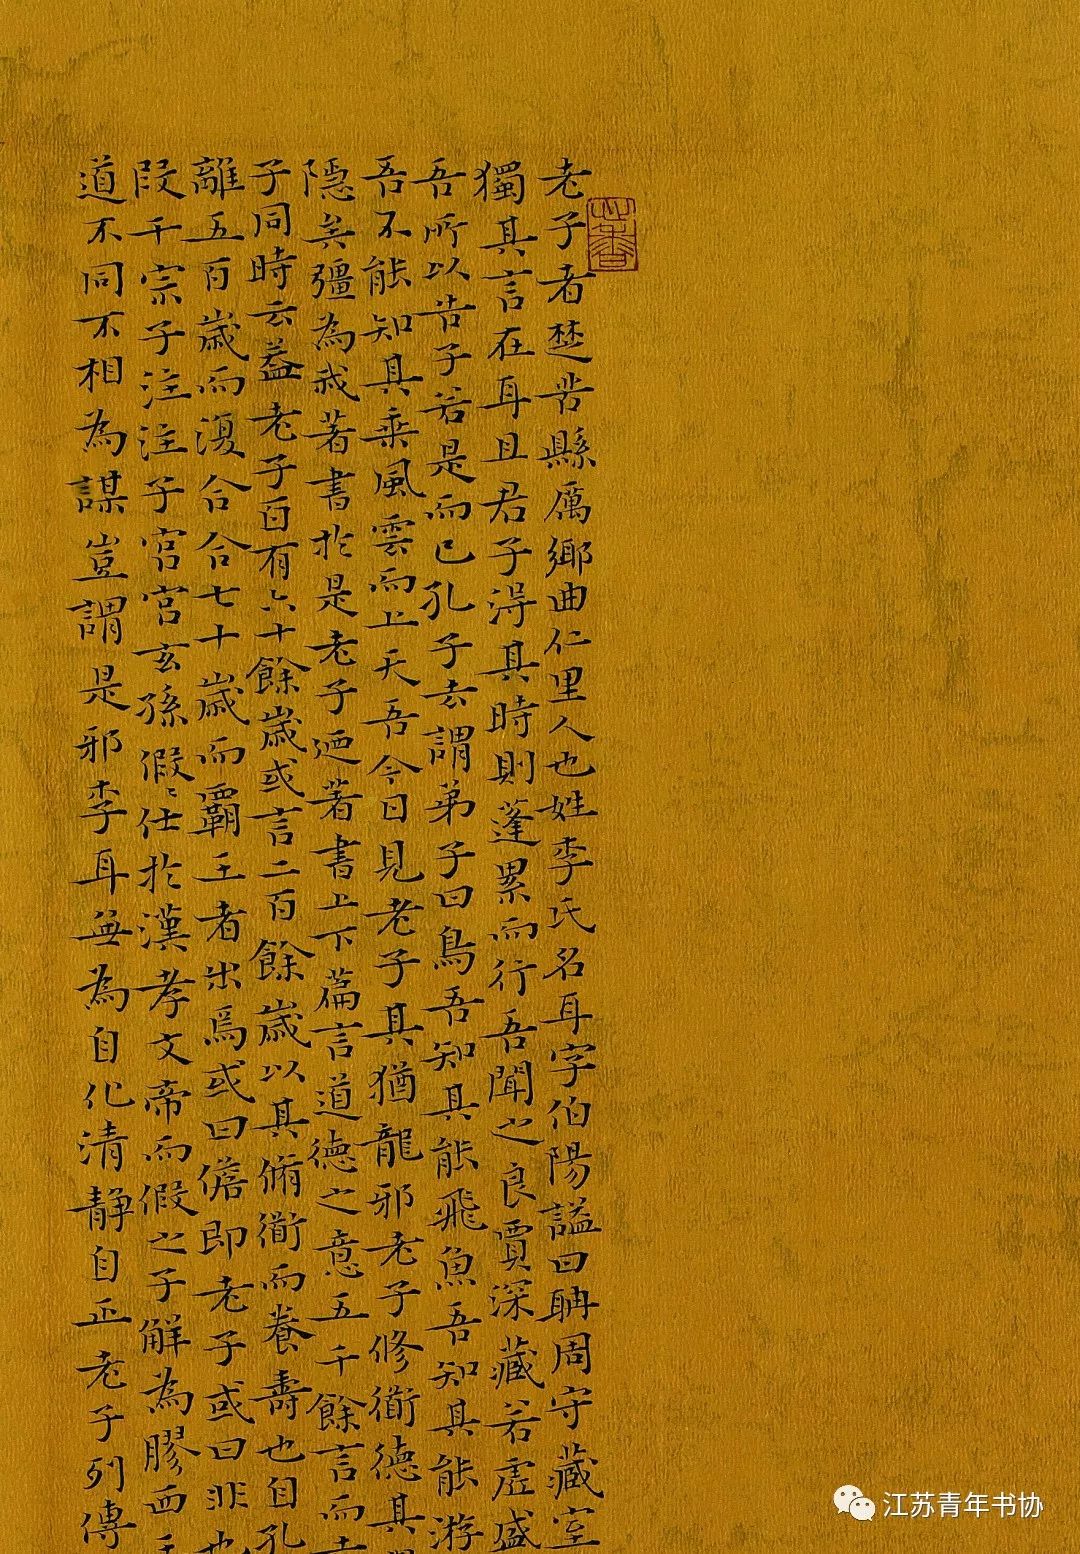 老子者楚苦縣厲鄉曲仁里人也姓李氏名耳字伯陽謚曰聃周守藏室
獨其言在耳且君子得其時則蓬累而行吾聞之良賈深藏若虛盛
吾所以告子若是而已孔子去謂弟子曰鳥吾知其能飛魚吾知其能游
吾不能知其乘風雲而上天吾今日見老子其猶龍邪老子修衜德其
隱矣彊為我著書於是老子迺著書上下篇言道德之意五千餘言而
子同時云蓋老子百有六十餘歲或言二百餘歲以其脩衜而養壽也自孔
離五百歲而復合合七十歲而霸王者出焉或曰儋即老子或曰非也
段干宗子注注子宮宮玄孫假〻仕於漢孝文帝而假之子解為膠西
道不同不相為謀豈謂是邪李耳無為自化清靜自正老子列傳
江苏青年书协